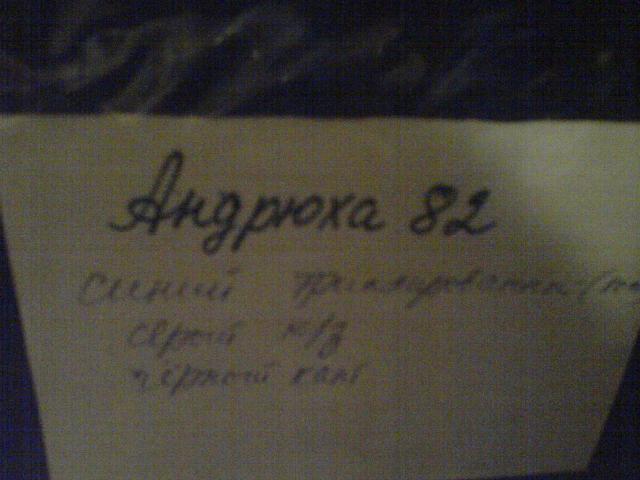 Андрюха 82
синий
серый к/з
чёрный кант